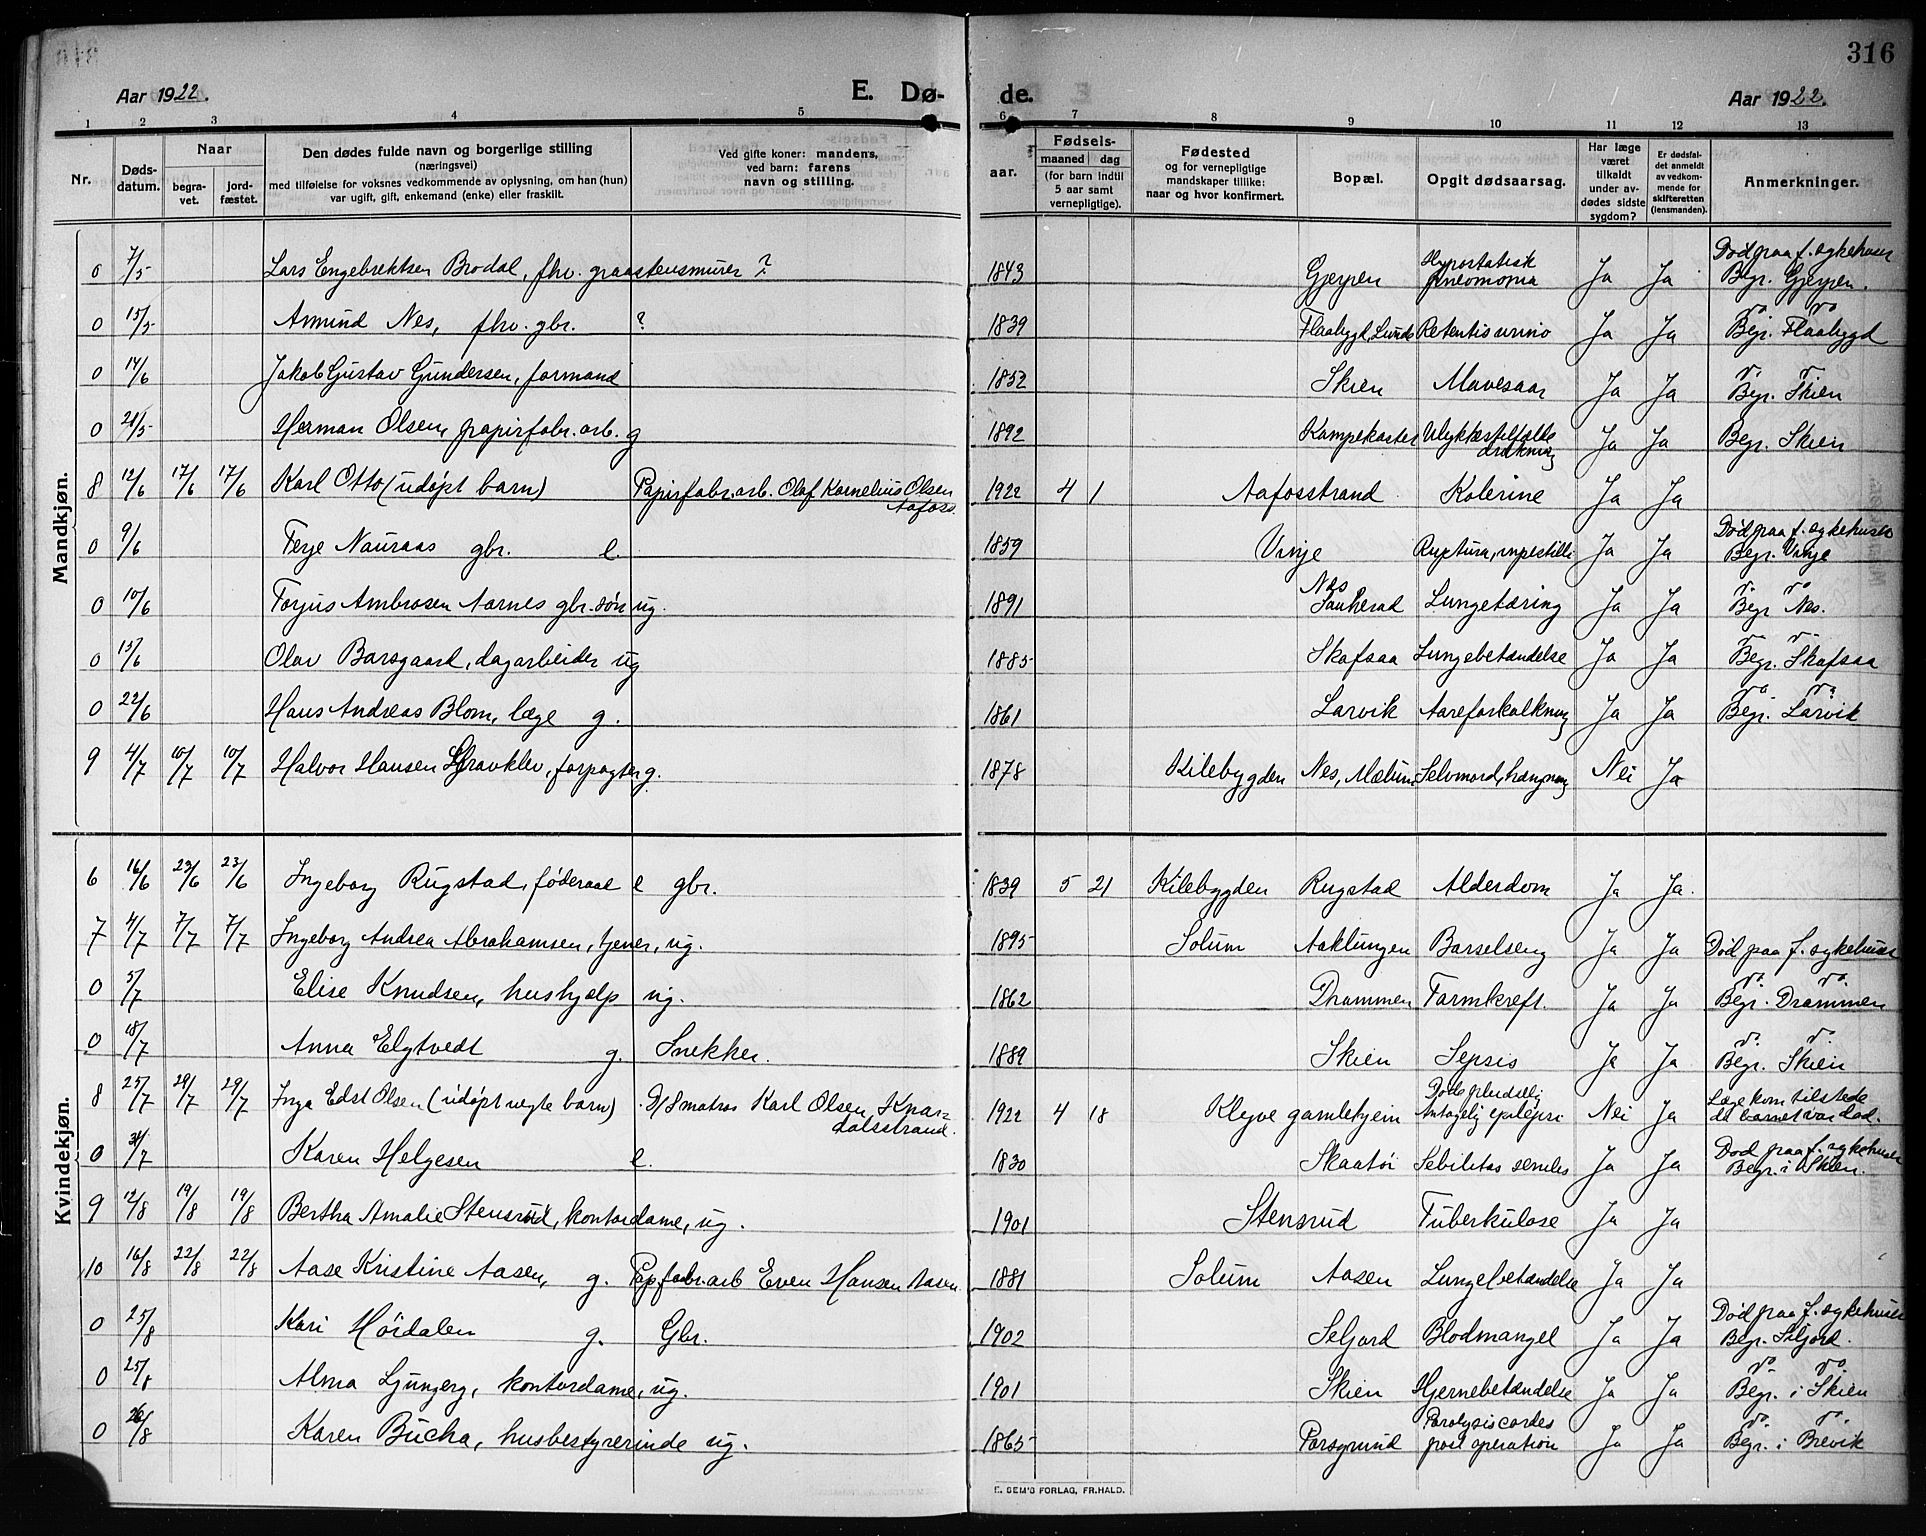 316
Aar 1922.
E. Dø-
de.
Aar 1922.
1 2 3 4 5 6 7 8 9 10 11 12 13
Nr.
Døds-
datum.
Naar
begra-
vet.
jord-
fæstet.
Den dødes fulde navn og borgerlige stilling
(næringsvei)
med tilføielse for voksnes vedkommende av oplysning, om han (hun)
var ugift, gift, enkemand (enke) eller fraskilt.
Ved gifte koner: mandens,
ved barn: farens
navn og stilling.
aar.
Fødsels-
maaned dag
(for barn indtil
5 aar samt
vernepligtige).
Fødested
og for vernepligtige
mandskaper tillike:
naar og hvor konfirmert.
Bopæl.
Opgit dødsaarsag.
Har læge
været
tilkaldt
under av-
dødes sidste
sygdom?
Er dødsfal-
det anmeldt
av vedkom-
mende for
skifteretten
(lensmanden).
Anmerkninger.
Mandkjøn.
0 7/5 Lars Engebrektsen Brodal, fhv. graastensmurer ? 1843 Gjerpen Hypostatisk pneomonia Ja Ja Død paa f. sykehuset Begr. Gjerpen.
0 15/5 Amund Nes, fhv. gbr. ? 1839 Flaabygd, Lunde Retentis urino Ja Ja Do Do Begr. Flaabygd
0 14/6 Jakob Gustav Gundersen, formand 1852 Skien Mavesaar Ja Ja Do Do Begr. Skien
0 28/5 Herman Olsen, papirfabr. arb. g 1892 Kampekastet Ulykkestilfælde drukning Ja Ja Begr. Skien
8 12/6 17/6 17/6 Karl Otto (udøpt barn) Papirfabr. arb. Olaf Kornelius Olsen Aafoss. 1922 4 1 Aafosstrand Kolerine Ja Ja
0 9/6 Terje Nauraas gbr. e. 1859 Vinje Ruptura, Ja Ja Død paa f. sykehuset Begr. Vinje
0 10/6 Torjus Ambrosen Aarnes gbr. søn ug. 1891 Nes Sauherad Lungetæring Ja Ja Do Do Begr. Nes.
0 15/6 Olav Barsgaard, dagarbeider ug 1885 Skafsaa Lungebetændelse Ja Ja Do Do Begr. Skafsaa
0 22/6 Hans Andreas Blom, læge g. 1861 Larvik Aareforkalkning Ja Ja Do Do Begr. Larvik
9 4/7 10/7 10/7 Halvor Hansen forpagter g. 1878 Kilebygden Nes, Mælum Selvmord, hængning Nei Ja
Kvindekjøn.
6 16/6 23/6 23/6 Ingeborg Rugstad, føderaad e gbr. 1839 5 21 Kilebygden Rugstad Alderdom Ja Ja.
7 4/7 7/7 7/7 Ingeborg Andrea Abrahamsen, tjener, ug. 1895 Solum Aaklungen Barselseng Ja Ja Død paa f. sykehuset
0 5/7 Elise Knudsen, hushjælp ug. 1862 Drammen Tarmkreft. Ja Ja Do Do. Begr. Drammen
0 18/7 Anna Elgtvedt g. Snekker. 1889 Skien Sepsis Ja Ja Do Do Begr. Skien
8 25/7 29/7 29/7 Inga Edst Olsen (udøpt uegte barn) D/S matros Karl Olsen, Knar- dalsstrand. 1922 4 18 Kleyve gamlehjem Døde pludselig Antagelig epilepsi Nei Ja Læge kom tilstede da barnet var død.
0 31/7 Karen Helgesen e. 1830 Skaatøi Sebilitas seniles Ja Ja Død paa f. sykehuset Begr. i Skien.
9 12/8 19/8 19/8 Bertha Amalie Stensrud, kontordame, ug. 1901 Stensrud Tuberkulose Ja Ja
10 16/8 22/8 22/8 Aase Kristine Aasen, g. Pap.fabr. arb Even Hansen Aasen 1881 Solum Aasen Lungebetændelse Ja Ja
0 25/8 Kari Hørdalen g. Gbr. 1902 Seljord Blodmangel Ja Ja Død paa f. sykehuset Begr. Seljord.
0 25/8 Alma Ljungerg, kontordame, ug. 1901 Skien Hjernebetændelse Ja Ja Do Do Begr. i Skien
0 26/8 Karen Bucha, husbestyrerinde ug. 1865 Porsgrund Paralysis cordes post operation Ja Ja Do Do Begr. i Brevik
E. SEM'S FORLAG, FR.HALD.